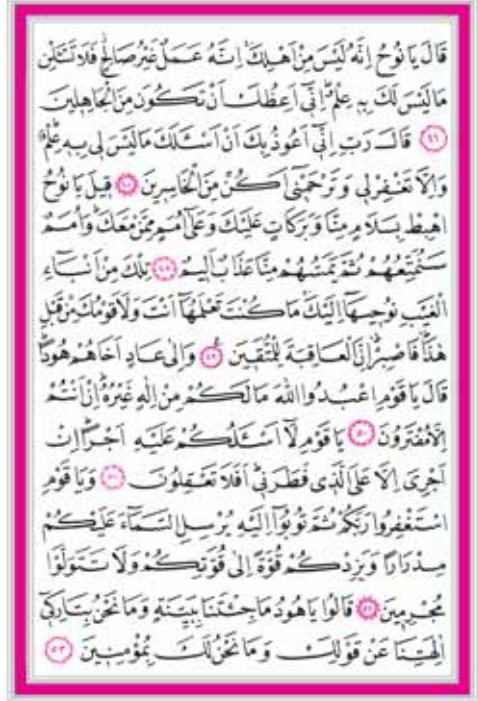 قَالَ يَا نُوحُ اِنَّهُ لَيْسَ مِنْ اَهْلِكَۚ اِنَّهُ عَمَلٌ غَيْرُ صَالِحٍۗ فَلَا تَسْـَٔلْنِ
مَا لَيْسَ لَكَ بِهِ عِلْمٌۜ اِنِّٓي اَعِظُكَ اَنْ تَكُونَ مِنَ الْجَاهِلِينَ
﴿٤٦﴾ قَالَ رَبِّ اِنِّٓي اَعُوذُ بِكَ اَنْ اَسْـَٔلَكَ مَا لَيْسَ لِي بِهِ عِلْمٌۜ
وَاِلَّا تَغْفِرْ لِي وَتَرْحَمْنِٓي اَكُنْ مِنَ الْخَاسِرِينَ ﴿٤٧﴾ قِيلَ يَا نُوحُ
اهْبِطْ بِسَلَامٍ مِنَّا وَبَرَكَاتٍ عَلَيْكَ وَعَلٰٓى اُمَمٍ مِمَّنْ مَعَكَۜ وَاُمَمٌ
سَنُمَتِّعُهُمْ ثُمَّ يَمَسُّهُمْ مِنَّا عَذَابٌ اَلِيمٌ ﴿٤٨﴾ تِلْكَ مِنْ اَنْبَٓاءِ
الْغَيْبِ نُوحِيهَٓا اِلَيْكَۚ مَا كُنْتَ تَعْلَمُهَٓا اَنْتَ وَلَا قَوْمُكَ مِنْ قَبْلِ
هٰذَاۜ فَاصْبِرْۜ اِنَّ الْعَاقِبَةَ لِلْمُتَّقِينَ ﴿٤٩﴾ وَاِلٰى عَادٍ اَخَاهُمْ هُودًاۜ
قَالَ يَا قَوْمِ اعْبُدُوا اللّٰهَ مَا لَكُمْ مِنْ اِلٰهٍ غَيْرُهُۜ اِنْ اَنْتُمْ
اِلَّا مُفْتَرُونَ ﴿٥٠﴾ يَا قَوْمِ لَٓا اَسْـَٔلُكُمْ عَلَيْهِ اَجْرًاۜ اِنْ
اَجْرِيَ اِلَّا عَلَى الَّذِي فَطَرَنِيۜ اَفَلَا تَعْقِلُونَ ﴿٥١﴾ وَيَا قَوْمِ
اسْتَغْفِرُوا رَبَّكُمْ ثُمَّ تُوبُٓوا اِلَيْهِ يُرْسِلِ السَّمَٓاءَ عَلَيْكُمْ
مِدْرَارًا وَيَزِدْكُمْ قُوَّةً اِلٰى قُوَّتِكُمْ وَلَا تَتَوَلَّوْا
مُجْرِمِينَ ﴿٥٢﴾ قَالُوا يَا هُودُ مَا جِئْتَنَا بِبَيِّنَةٍ وَمَا نَحْنُ بِتَارِكِٓي
اٰلِهَتِنَا عَنْ قَوْلِكَ وَمَا نَحْنُ لَكَ بِمُؤْمِنِينَ ﴿٥٣﴾